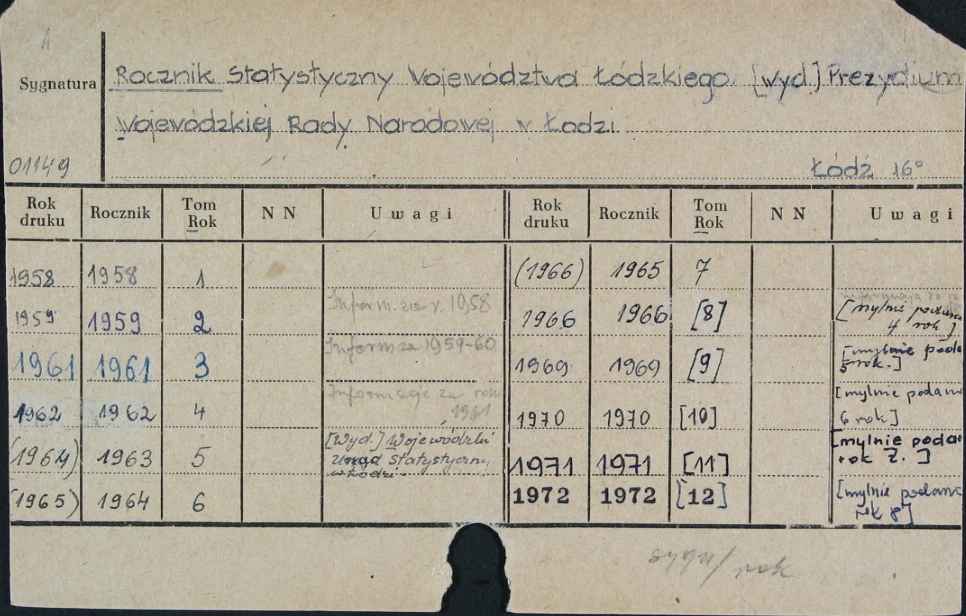 A
Sygnatura
Rocznik Statystyczny Województwa Łódzkiego. [wyd.] Prezydium
Wojewódzkiej Rady Narodowej w Łodzi.
01149
Łódź 16°
Rok druku Rocznik Tom Rok N N Uwagi Rok druku Rocznik Tom Rok N N Uwagi
1958 1958 1 (1966) 1965 7
1959 1959 2 Inform. za r. 1958 1966 1966 [8] [mylnie podano 4 rok]
1961 1961 3 Inform za 1959-60 1969 1969 [9] [mylnie poda 5 rok.]
1962 1962 4 Informacje za rok 1961 1970 1970 [10] [mylnie podano 6 rok]
(1964) 1963 5 [Wyd.] Wojewódzki Urząd Statystyczny w Łodzi 1971 1971 [11] [mylnie poda rok 7.]
(1965) 1964 6 1972 1972 [12] [mylnie podano rok 8]
rok